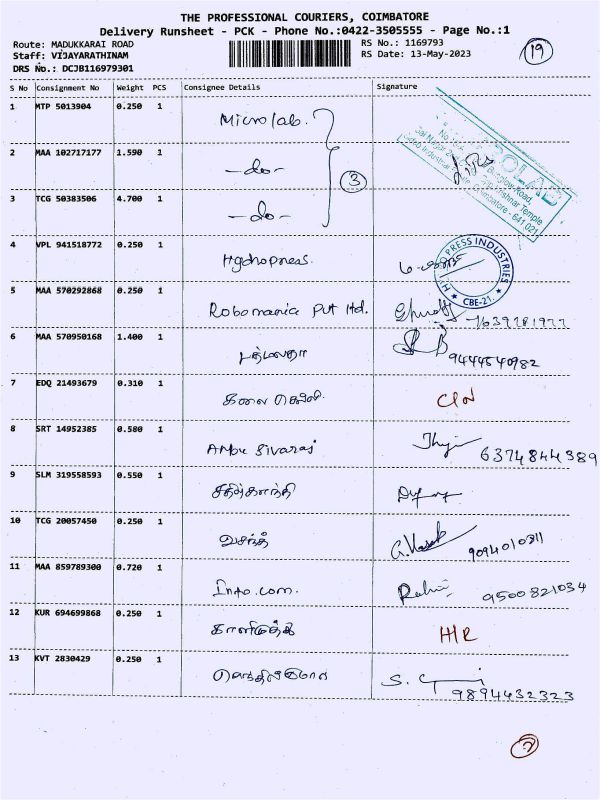 THE PROFESSIONAL COURIERS, COIMBATORE
Delivery Runsheet - PCK - Phone No.:0422-3505555 - Page No.:1
Route: MADUKKARAI ROAD
Staff: VIJAYARATHINAM
DRS No.: DCJB116979301
RS No.: 1169793
RS Date: 13-May-2023
19
S No Consignment No Weight PCS Consignee Details Signature
1 MTP 5013904 0.250 1 Microlab.
2 MAA 102717177 1.590 1 -do-
3 TCG 50383506 4.700 1 -do-
3
4 VPL 941518772 0.250 1 Hydropress.
PRESS INDUSTRIES
CBE-21.
5 MAA 570292868 0.250 1 Robomania Pvt ltd.
6 MAA 570950168 1.400 1 பத்மலதா 9444540982
7 EDQ 21493679 0.310 1 கலை செல்வி
8 SRT 14952385 0.580 1 Anbu Sivaraj 6374844389
9 SLM 319558593 0.550 1
10 TCG 20057450 0.250 1 வசந்த்
11 MAA 859789300 0.720 1 Info.com. 9500821034
12 KUR 694699868 0.250 1 காளிமுத்து H/R
13 KVT 2830429 0.250 1 செந்தில்குமார் 9894432323